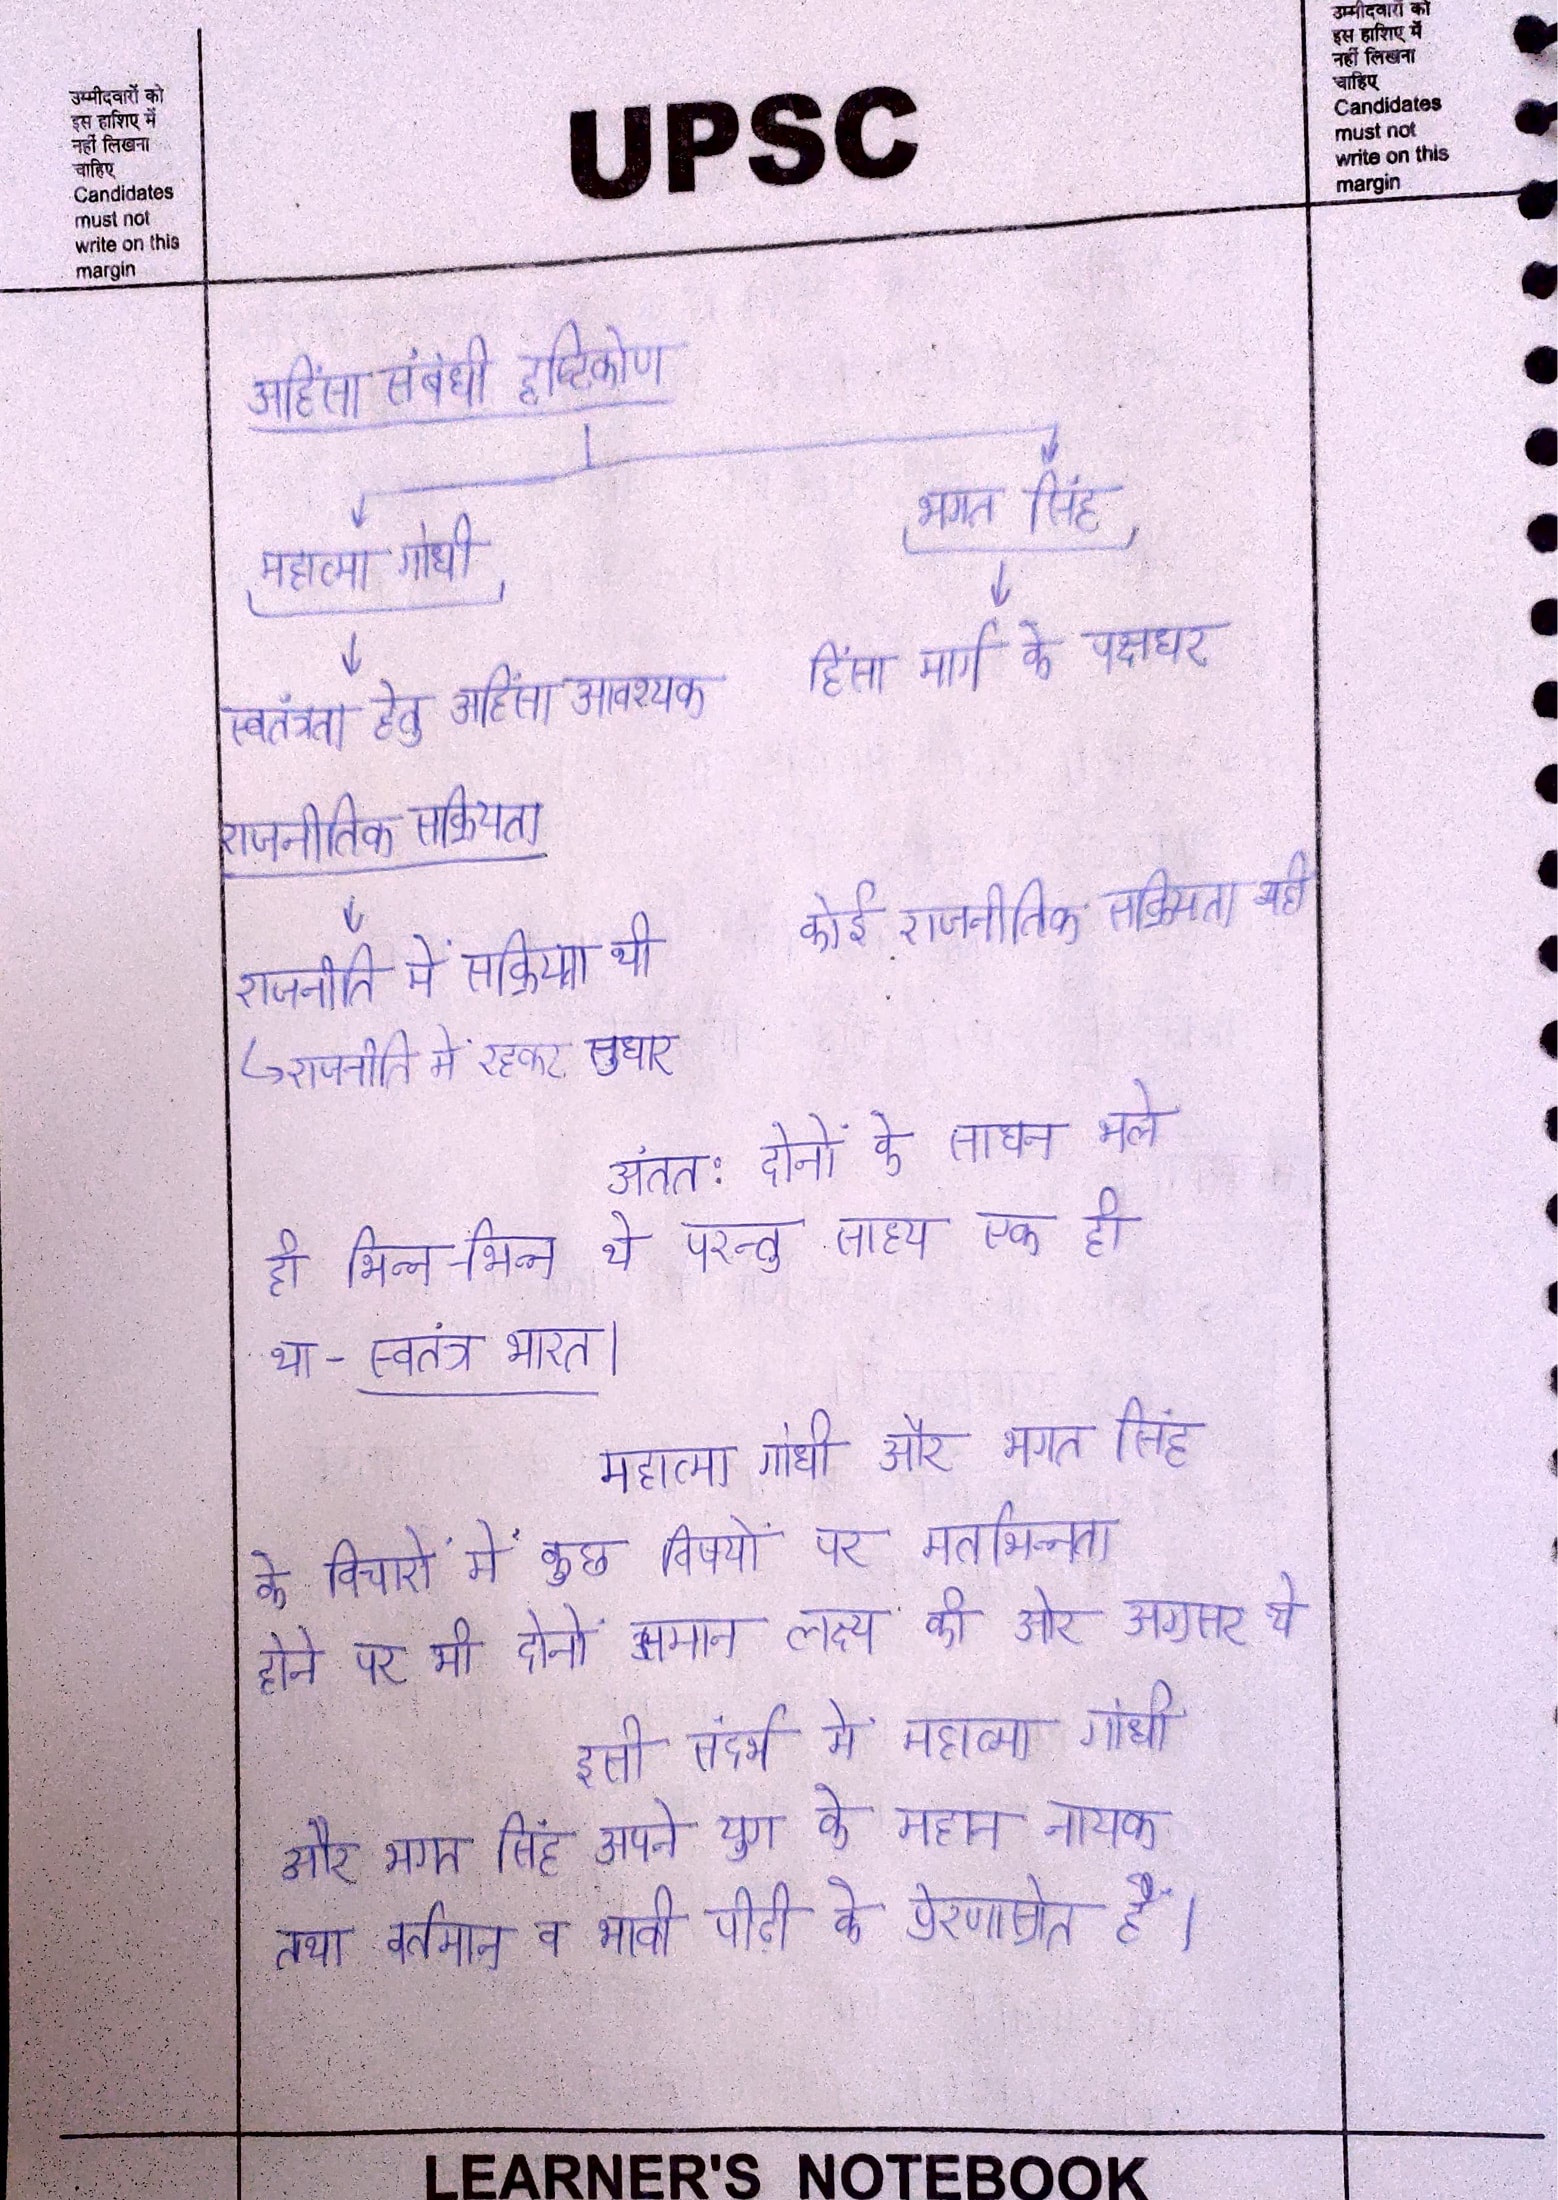 उम्मीदवारों को
इस हाशिए में
नहीं लिखना
चाहिए
Candidates
must not
write on this
margin
UPSC
उम्मीदवारों को
इस हाशिए में
नहीं लिखना
चाहिए
Candidates
must not
write on this
margin
अहिंसा संबंधी दृष्टिकोण
महात्मा गांधी
भगत सिंह
स्वतंत्रता हेतु अहिंसा आवश्यक
हिंसा मार्ग के पक्षधर
राजनीतिक सक्रियता
राजनीति में सक्रियता थी
कोई राजनीतिक सक्रियता नही
↳ राजनीति में रहकर सुधार
अंतत: दोनों के साधन भले
ही भिन्न-भिन्न थे परन्तु साध्य एक ही
था - स्वतंत्र भारत।
महात्मा गांधी और भगत सिंह
के विचारों में कुछ विषयों पर मतभिन्नता
होने पर भी दोनों समान लक्ष्य की ओर अग्रसर थे
इसी संदर्भ में महात्मा गांधी
और भगत सिंह अपने युग के महान नायक
तथा वर्तमान व भावी पीढी के प्रेरणास्रोत हैं।
LEARNER'S NOTEBOOK